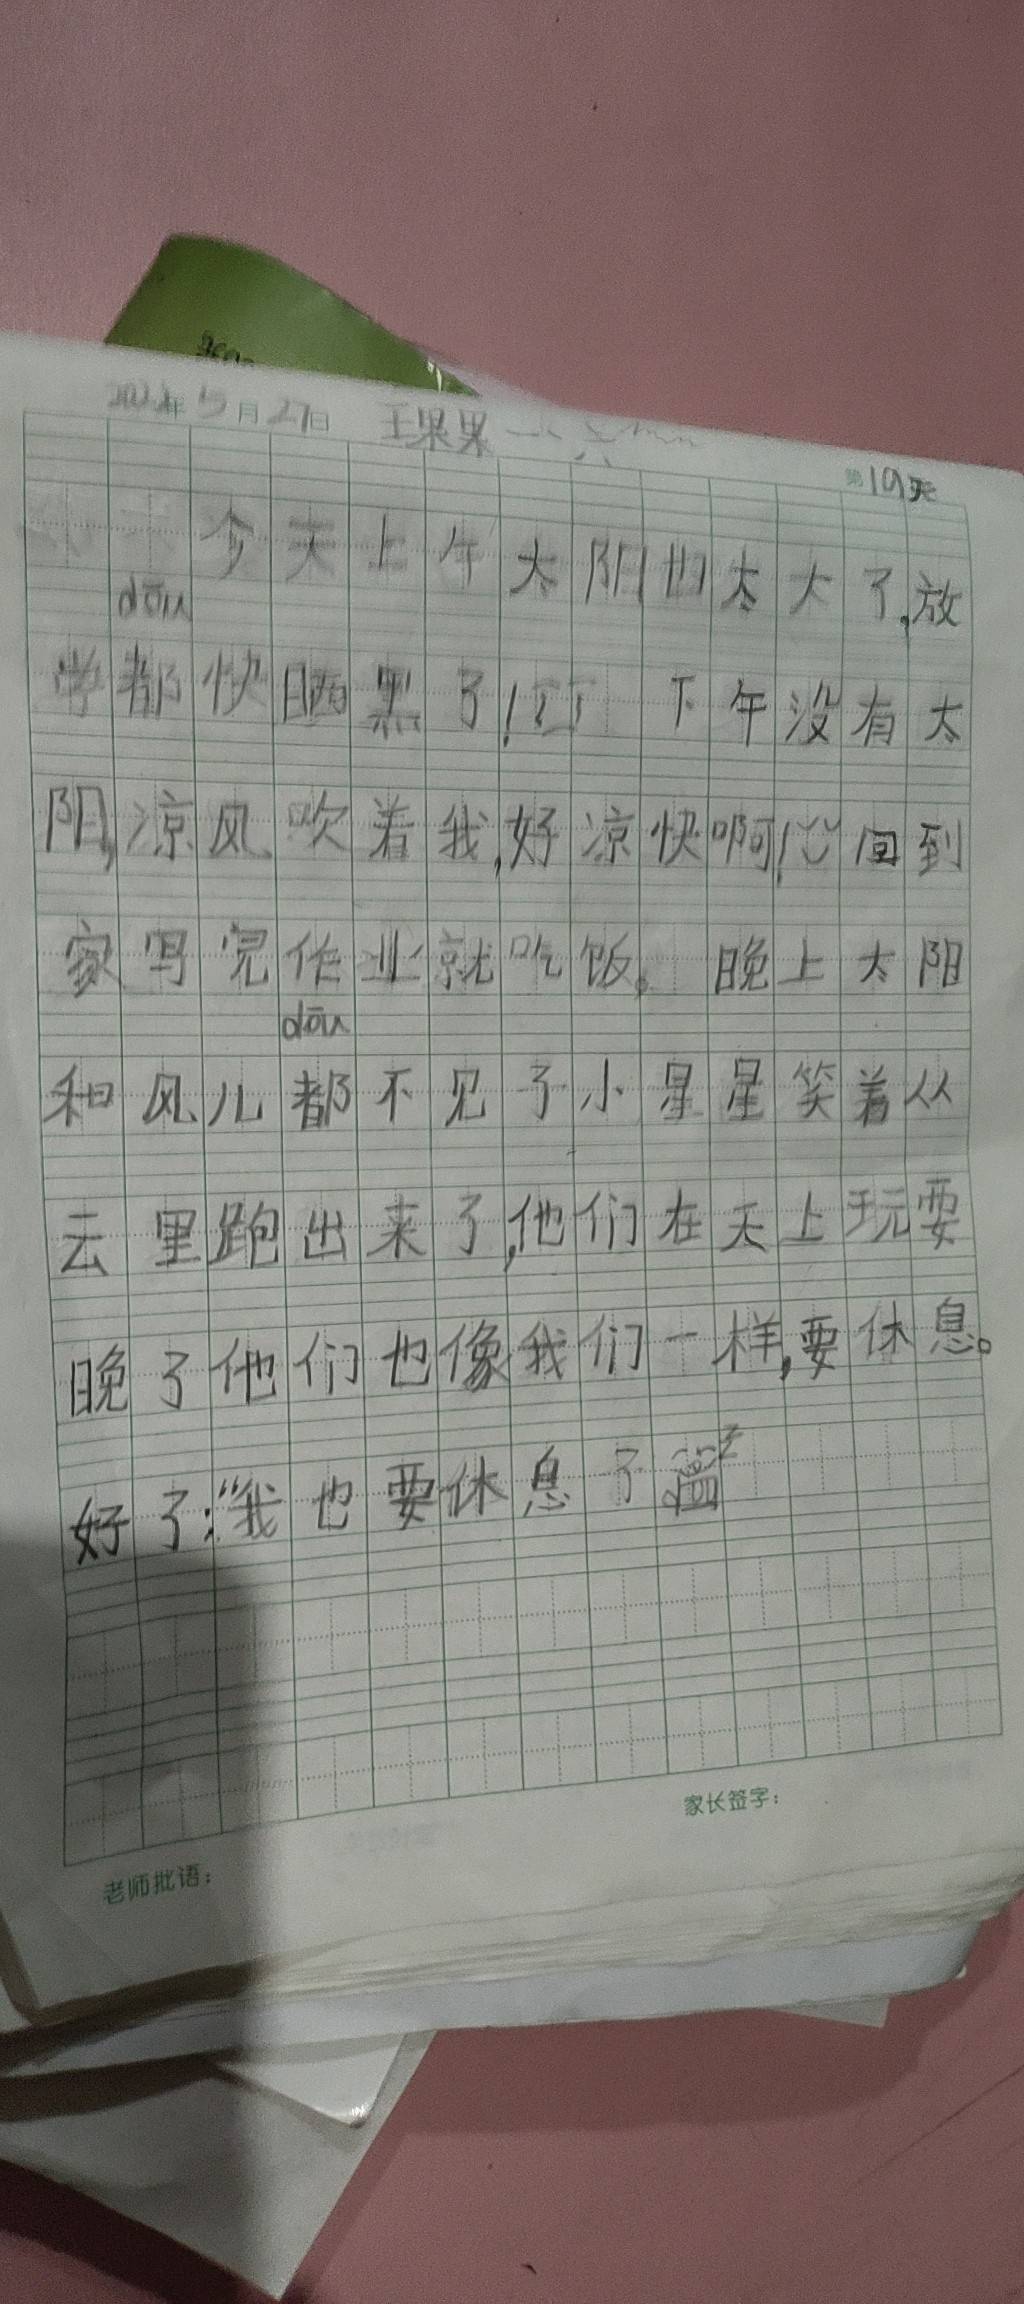 2022年5月27日 王果果 一、六
第19天
今天上午太阳也太大了,放
dōu
学都快晒黑了! 下午没有太
阳,凉风吹着我,好凉快啊! 回到
家写完作业就吃饭。 晚上太阳
dōu
和风儿都不见了小星星笑着从
云里跑出来了,他们在天上玩要
晚了他们也像我们一样,要休息。
好了:“我也要休息了
家长签字:
老师批语: